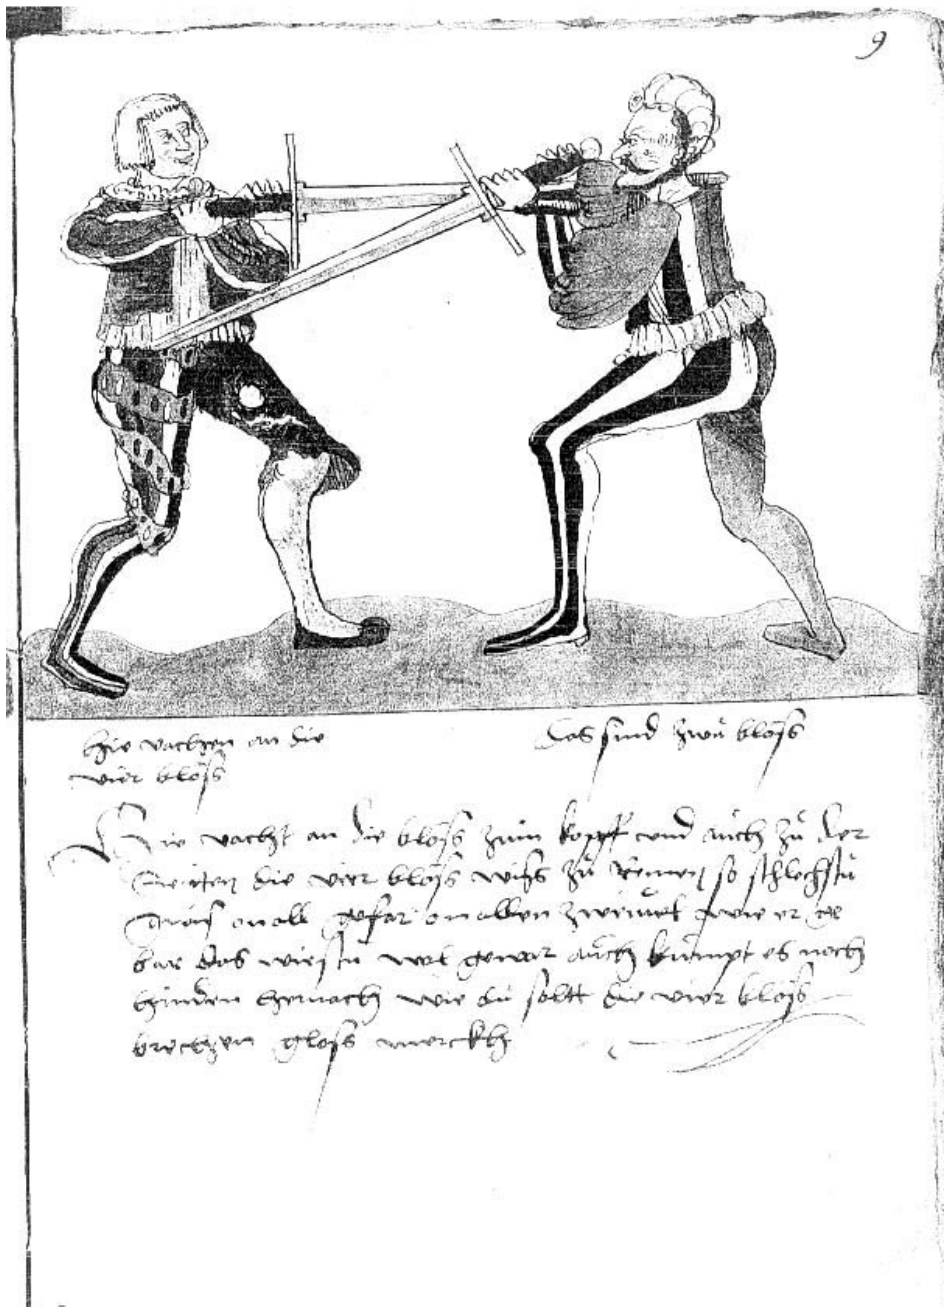 9
hie vachen an die
vier blöss
Das sind zwu blöss
Hie vacht an die blöss zum kopff vnd auch zu der
Seitten die vier blöss wiss zu Remen so schlechstu
gwiss on all gefar on allen zweiuel wie er ge
bar das wirstu wol gewar auch kumpt es noch
hinden hernach wie du soltt die vier blöss
brechen gloss merckh